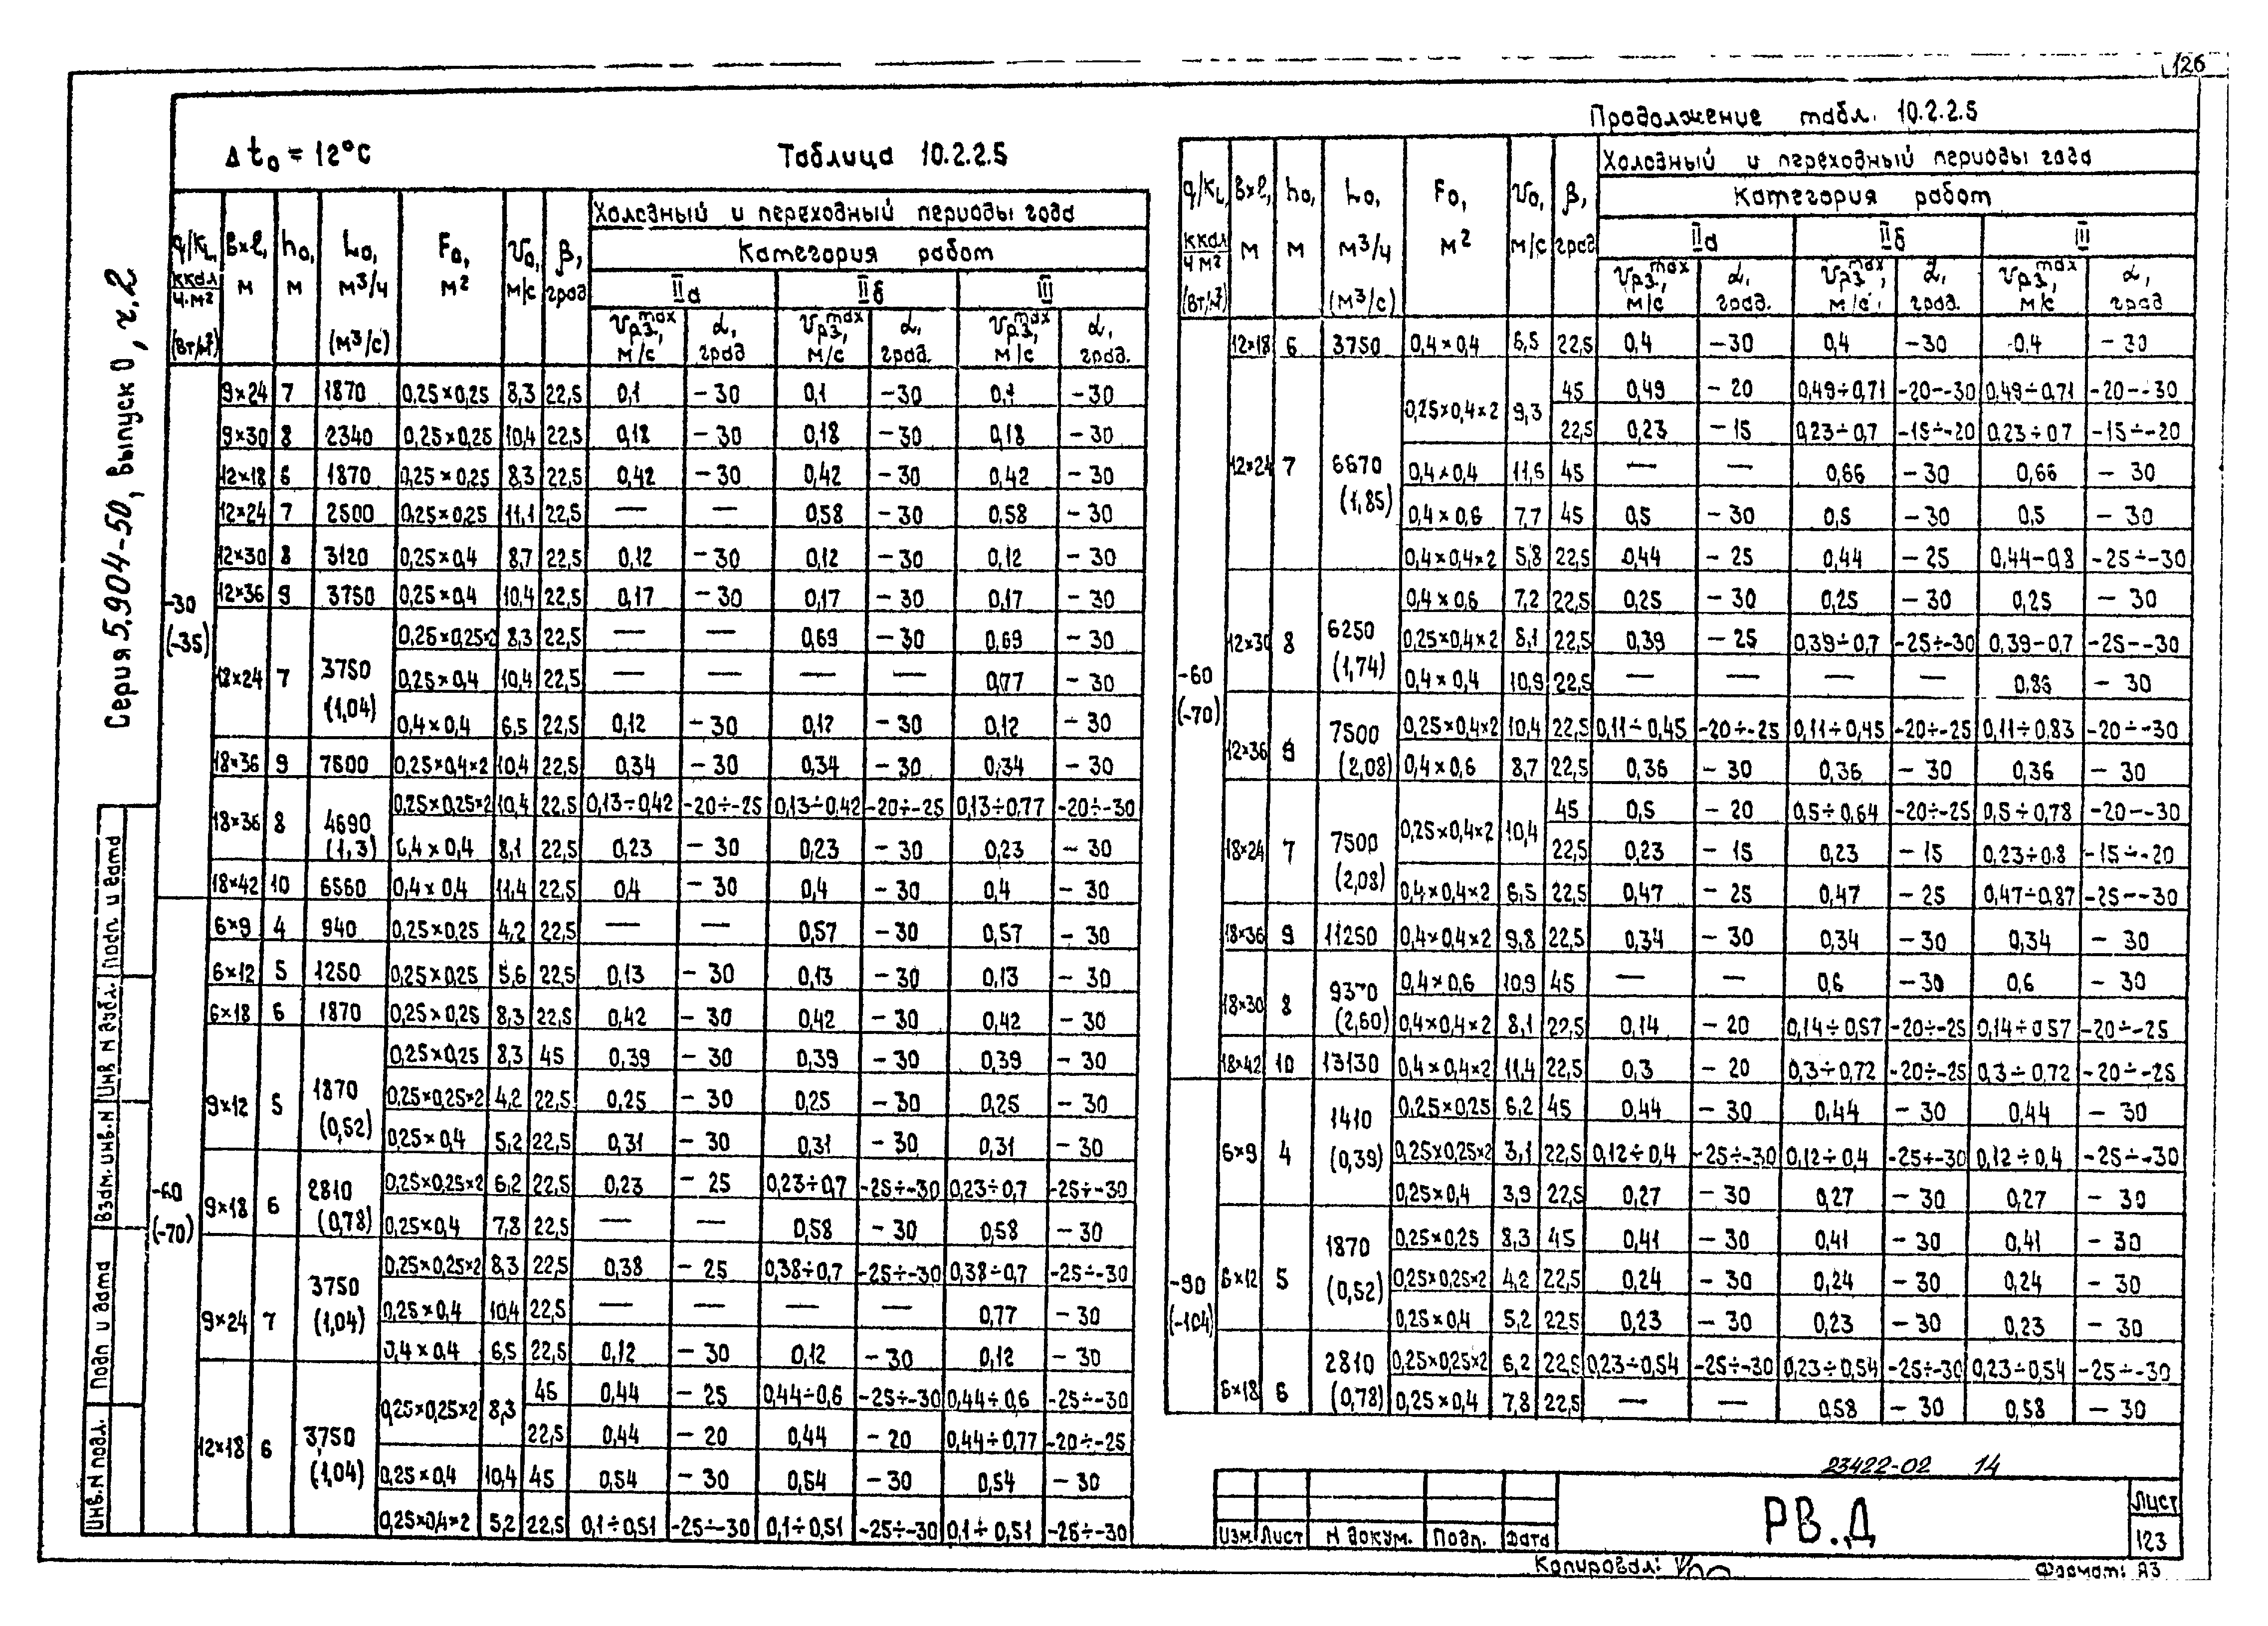 126
Серия 5.904-50, выпуск 0, ч.2
Δ t₀ = 12°С
Таблица 10.2.2.5
q/K_L, ккал/ч·м² (Вт/м²) | в×ℓ, м | h₀, м | L₀, м³/ч (м³/с) | F₀, м² | V₀, м/с | β, град | Холодный и переходный периоды года
Категория работ
IIа | IIб | III
Vр.з.^max, м/с | α, град | Vр.з.^max, м/с | α, град. | Vр.з.^max, м/с | α, град.
-30 (-35)
9×24 | 7 | 1870 | 0,25×0,25 | 8,3 | 22,5 | 0,1 | -30 | 0,1 | -30 | 0,1 | -30
9×30 | 8 | 2340 | 0,25×0,25 | 10,4 | 22,5 | 0,18 | -30 | 0,18 | -30 | 0,18 | -30
12×18 | 6 | 1870 | 0,25×0,25 | 8,3 | 22,5 | 0,42 | -30 | 0,42 | -30 | 0,42 | -30
12×24 | 7 | 2500 | 0,25×0,25 | 11,1 | 22,5 | — | — | 0,58 | -30 | 0,58 | -30
12×30 | 8 | 3120 | 0,25×0,4 | 8,7 | 22,5 | 0,12 | -30 | 0,12 | -30 | 0,12 | -30
12×36 | 9 | 3750 | 0,25×0,4 | 10,4 | 22,5 | 0,17 | -30 | 0,17 | -30 | 0,17 | -30
12×24 | 7 | 3750 (1,04) | 0,25×0,25×2 | 8,3 | 22,5 | — | — | 0,69 | -30 | 0,69 | -30
0,25×0,4 | 10,4 | 22,5 | — | — | — | — | 0,77 | -30
0,4×0,4 | 6,5 | 22,5 | 0,12 | -30 | 0,12 | -30 | 0,12 | -30
18×36 | 9 | 7500 | 0,25×0,4×2 | 10,4 | 22,5 | 0,34 | -30 | 0,34 | -30 | 0,34 | -30
18×36 | 8 | 4690 (1,3) | 0,25×0,25×2 | 10,4 | 22,5 | 0,13÷0,42 | -20÷-25 | 0,13÷0,42 | -20÷-25 | 0,13÷0,77 | -20÷-30
0,4×0,4 | 8,1 | 22,5 | 0,23 | -30 | 0,23 | -30 | 0,23 | -30
18×42 | 10 | 6560 | 0,4×0,4 | 11,4 | 22,5 | 0,4 | -30 | 0,4 | -30 | 0,4 | -30
-60 (-70)
6×9 | 4 | 940 | 0,25×0,25 | 4,2 | 22,5 | — | — | 0,57 | -30 | 0,57 | -30
6×12 | 5 | 1250 | 0,25×0,25 | 5,6 | 22,5 | 0,13 | -30 | 0,13 | -30 | 0,13 | -30
6×18 | 6 | 1870 | 0,25×0,25 | 8,3 | 22,5 | 0,42 | -30 | 0,42 | -30 | 0,42 | -30
9×12 | 5 | 1870 (0,52) | 0,25×0,25 | 8,3 | 45 | 0,39 | -30 | 0,39 | -30 | 0,39 | -30
0,25×0,25×2 | 4,2 | 22,5 | 0,25 | -30 | 0,25 | -30 | 0,25 | -30
0,25×0,4 | 5,2 | 22,5 | 0,31 | -30 | 0,31 | -30 | 0,31 | -30
9×18 | 6 | 2810 (0,78) | 0,25×0,25×2 | 6,2 | 22,5 | 0,23 | -25 | 0,23÷0,7 | -25÷-30 | 0,23÷0,7 | -25÷-30
0,25×0,4 | 7,8 | 22,5 | — | — | 0,58 | -30 | 0,58 | -30
9×24 | 7 | 3750 (1,04) | 0,25×0,25×2 | 8,3 | 22,5 | 0,38 | -25 | 0,38÷0,7 | -25÷-30 | 0,38÷0,7 | -25÷-30
0,25×0,4 | 10,4 | 22,5 | — | — | — | — | 0,77 | -30
0,4×0,4 | 6,5 | 22,5 | 0,12 | -30 | 0,12 | -30 | 0,12 | -30
12×18 | 6 | 3750 (1,04) | 0,25×0,25×2 | 8,3 | 45 | 0,44 | -25 | 0,44÷0,6 | -25÷-30 | 0,44÷0,6 | -25÷-30
22,5 | 0,44 | -20 | 0,44 | -20 | 0,44÷0,77 | -20÷-25
0,25×0,4 | 10,4 | 45 | 0,54 | -30 | 0,54 | -30 | 0,54 | -30
0,25×0,4×2 | 5,2 | 22,5 | 0,1÷0,51 | -25÷-30 | 0,1÷0,51 | -25÷-30 | 0,1÷0,51 | -25÷-30
Продолжение табл. 10.2.2.5
q/K_L, ккал/ч м² (Вт/м²) | в×ℓ, м | h₀, м | L₀, м³/ч (м³/с) | F₀, м² | V₀, м/с | β, град | Холодный и переходный периоды года
Категория работ
IIа | IIб | III
Vр.з.^max, м/с | α, град. | Vр.з.^max, м/с | α, град. | Vр.з.^max, м/с | α, град
-60 (-70)
12×18 | 6 | 3750 | 0,4×0,4 | 6,5 | 22,5 | 0,4 | -30 | 0,4 | -30 | 0,4 | -30
12×24 | 7 | 6670 (1,85) | 0,25×0,4×2 | 9,3 | 45 | 0,49 | -20 | 0,49÷0,71 | -20--30 | 0,49÷0,71 | -20--30
22,5 | 0,23 | -15 | 0,23÷0,7 | -15÷-20 | 0,23÷0,7 | -15÷-20
0,4×0,4 | 11,6 | 45 | — | — | 0,66 | -30 | 0,66 | -30
0,4×0,6 | 7,7 | 45 | 0,5 | -30 | 0,5 | -30 | 0,5 | -30
0,4×0,4×2 | 5,8 | 22,5 | 0,44 | -25 | 0,44 | -25 | 0,44-0,8 | -25÷-30
12×30 | 8 | 6250 (1,74) | 0,4×0,6 | 7,2 | 22,5 | 0,25 | -30 | 0,25 | -30 | 0,25 | -30
0,25×0,4×2 | 8,1 | 22,5 | 0,39 | -25 | 0,39÷0,7 | -25÷-30 | 0,39-0,7 | -25--30
0,4×0,4 | 10,9 | 22,5 | — | — | — | — | 0,86 | -30
12×36 | 9 | 7500 (2,08) | 0,25×0,4×2 | 10,4 | 22,5 | 0,11÷0,45 | -20÷-25 | 0,11÷0,45 | -20÷-25 | 0,11÷0,83 | -20÷-30
0,4×0,6 | 8,7 | 22,5 | 0,36 | -30 | 0,36 | -30 | 0,36 | -30
18×24 | 7 | 7500 (2,08) | 0,25×0,4×2 | 10,4 | 45 | 0,5 | -20 | 0,5÷0,64 | -20÷-25 | 0,5÷0,78 | -20--30
22,5 | 0,23 | -15 | 0,23 | -15 | 0,23÷0,8 | -15÷-20
0,4×0,4×2 | 6,5 | 22,5 | 0,47 | -25 | 0,47 | -25 | 0,47-0,87 | -25--30
18×36 | 9 | 11250 | 0,4×0,4×2 | 9,8 | 22,5 | 0,34 | -30 | 0,34 | -30 | 0,34 | -30
18×30 | 8 | 9370 (2,60) | 0,4×0,6 | 10,9 | 45 | — | — | 0,6 | -30 | 0,6 | -30
0,4×0,4×2 | 8,1 | 22,5 | 0,14 | -20 | 0,14÷0,57 | -20÷-25 | 0,14÷0,57 | -20÷-25
18×42 | 10 | 13130 | 0,4×0,4×2 | 11,4 | 22,5 | 0,3 | -20 | 0,3÷0,72 | -20÷-25 | 0,3÷0,72 | -20÷-25
-90 (-104)
6×9 | 4 | 1410 (0,39) | 0,25×0,25 | 6,2 | 45 | 0,44 | -30 | 0,44 | -30 | 0,44 | -30
0,25×0,25×2 | 3,1 | 22,5 | 0,12÷0,4 | -25÷-30 | 0,12÷0,4 | -25÷-30 | 0,12÷0,4 | -25÷-30
0,25×0,4 | 3,9 | 22,5 | 0,27 | -30 | 0,27 | -30 | 0,27 | -30
6×12 | 5 | 1870 (0,52) | 0,25×0,25 | 8,3 | 45 | 0,41 | -30 | 0,41 | -30 | 0,41 | -30
0,25×0,25×2 | 4,2 | 22,5 | 0,24 | -30 | 0,24 | -30 | 0,24 | -30
0,25×0,4 | 5,2 | 22,5 | 0,23 | -30 | 0,23 | -30 | 0,23 | -30
6×18 | 6 | 2810 (0,78) | 0,25×0,25×2 | 6,2 | 22,5 | 0,23÷0,54 | -25÷-30 | 0,23÷0,54 | -25÷-30 | 0,23÷0,54 | -25÷-30
0,25×0,4 | 7,8 | 22,5 | — | — | 0,58 | -30 | 0,58 | -30
23422-02 14
Инв.N подл. | Подп и дата | Взам. инв.N | Инв N дубл. | Подп. и дата
Изм. | Лист | N докум. | Подп. | Дата
РВ.Д
Лист
123
Копировал:
Формат: А3